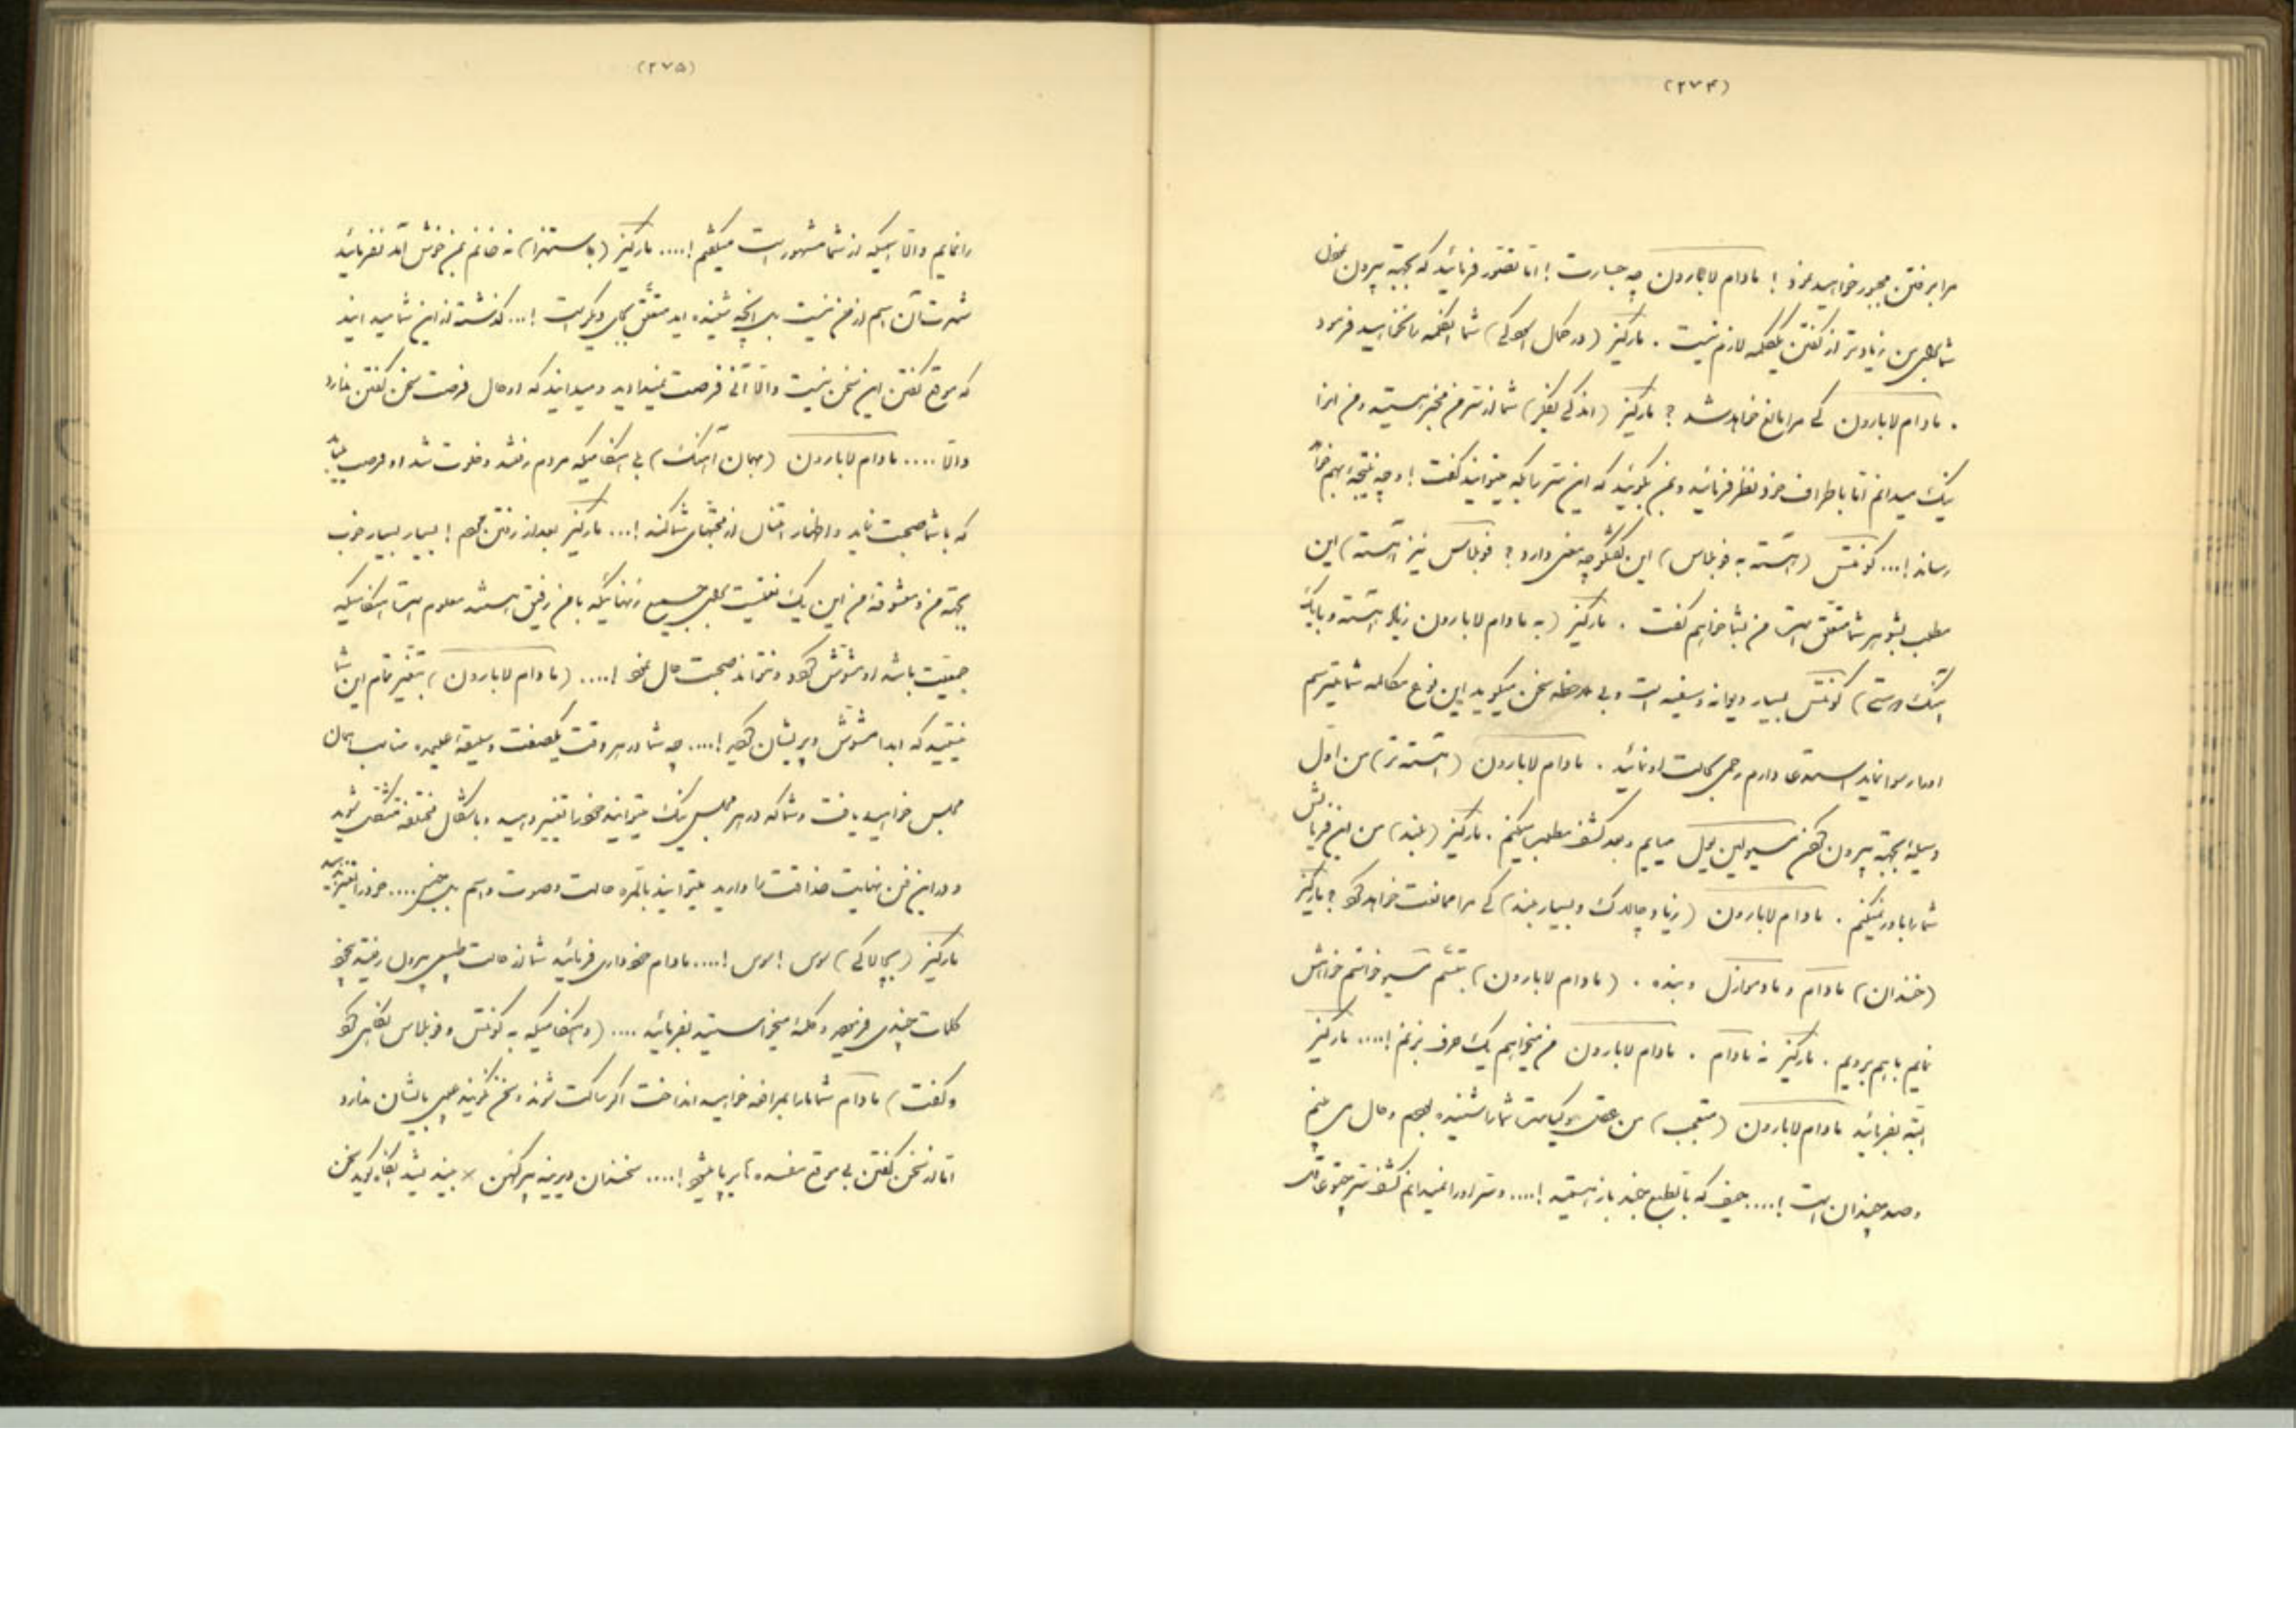 (۲۷۴)
مرا برفتن مجبور خواهید نمود ! مادام لابارون چه جسارت ! اما تصور فرمائید که بجهة بیرون
شما بمن زیادتر از گفتن یکلمه لازم نیست . مارکیز (در کمال) شما آنکلمه را نخواهید فرمود
. مادام لابارون کی مرا مانع خواهد شد ؟ مارکیز (اندکی بفکر) شما از سر من مخبر هستید و من انرا
نیک میدانم اما باطراف خود نظر فرمائید و بمن بگوئید که این سر را بکه میتوانید گفت ! و چه نتیجه بهم
رساند !... کونتس (آهسته به) این گفتگو چه معنی دارد ؟ نیز (آهسته) این
مطلب بشوهر شما متعلق است من بشما خواهم گفت . مارکیز (به مادام لابارون زیاد آهسته و با یک
آهنگ درستی) کونتس بسیار دیوانه و سفیه است و بی ملاحظه سخن میگوید این نوع مکالمه شما میترسم
او را رسوا نماید استدعا دارم رحمی بحالت او نمائید . مادام لابارون (آهسته‌تر) من اول
وسیله بجهة بیرون کردن مسیو لین‌ویل میابم و بعد کشف مطلب میکنم . مارکیز (بلند) من این فرمایش
شما را باور نمیکنم . مادام لابارون (زیاد چالاک و بسیار بلند) کی مرا ممانعت خواهد کرد ؟ مارکیز
(خندان) مادام و مادموازل و بنده . (مادام لابارون) بتبسم مسیو خواستم خواهش
نمایم باهم برویم . مارکیز نه مادام . مادام لابارون من میخواهم یک حرف بزنم !.... مارکیز
البته بفرمائید مادام لابارون (متعجب) من عقل و کیاست شما را شنیده بودم و حال می بینم
و صد چندان است !.... حیف که بالطبع هستید !.... و سر او را نمیدانم کشف سر
(۲۷۵)
را نمایم و الا اسمیکه از شما مشهور است میگفتم !.... مارکیز (باستهزا) نه خانم بمن خوش آمد نفرمائید
شهرت آن اسم از من نیست بل آنچه شنیده‌اید متعلق بجای دیگر است !... گذشته از این شما میدانید
که موقع گفتن این سخن نیست و الا آنی فرصت نمیدادید و میدانید که او حال فرصت سخن گفتن ندارد
و الا .... مادام لابارون (بهمان آهنگ) بی هنگامیکه مردم رفتند و خلوت شد او فرصت
که با شما صحبت نماید و اظهار امتنان از محبتهای شما کند !... مارکیز بعد از رفتن مردم ! بسیار بسیار خوب
بجهة من و معشوقه من این یک نعمتیست بلی جمیع زنهائیکه با من رفیق هستند معلوم است هنگامیکه
جمعیت باشد او مشوش گردد و نتواند صحبت حال نمود !.... (مادام لابارون) بتغیر تمام این شما
نیستید که ابدا مشوش و پریشان گردید !.... چه شما در هر وقت یکصفت و سلیقه علیحده مناسب همان
مجلس خواهید یافت و شما که در هر مجلس نیک میتوانید خود را تغییر دهید و باشکال مختلفه متشکل شوید
و در این فن نهایت حذاقت را دارید میتوانید بالمره حالت و صوت و اسم .... خود را تغییر دهید
مارکیز (بچالاکی) لوس ! لوس !.... مادام خودداری فرمائید شما از حالت طبیعی بیرون رفتید
کلمات چندی فرمودید و کلمه میخواستید بفرمائید .... (و هنگامیکه به کونتس و نگاهی کرد
و گفت) مادام شما ما را بمرافعه خواهید انداخت اگر ساکت شوند و سخن نگویند عیبی بایشان ندارد
اما از سخن گفتن بی موقع مفسده‌ها برپا میشود !.... سخندان دیرینه پیر کهن × بیندیشد آنگاه گوید سخن